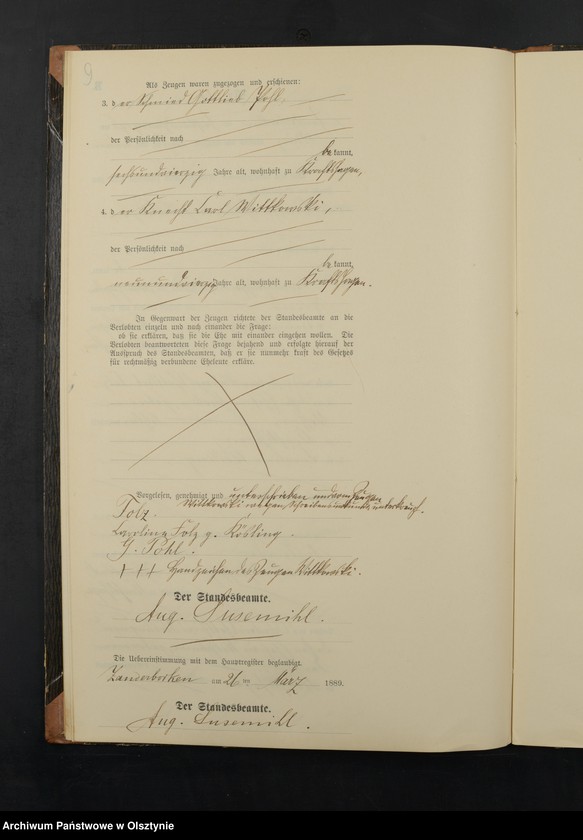 9
Als Zeugen waren zugezogen und erschienen:
3. der Schmied Gottlieb Pohl,
der Persönlichkeit nach
be kannt,
sechsundvierzig Jahre alt, wohnhaft zu Kraftshagen,
4. der Knecht Carl Wittkowski,
der Persönlichkeit nach
be kannt,
neunundvierzig Jahre alt, wohnhaft zu Kraftshagen.
In Gegenwart der Zeugen richtete der Standesbeamte an die
Verlobten einzeln und nach einander die Frage:
ob sie erklären, daß sie die Ehe mit einander eingehen wollen. Die
Verlobten beantworteten diese Frage bejahend und erfolgte hierauf der
Ausspruch des Standesbeamten, daß er sie nunmehr kraft des Gesetzes
für rechtmäßig verbundene Eheleute erkläre.
Vorgelesen, genehmigt und unterschrieben und vom Zeugen
Wittkowski wegen Schreibensunkunde unterkreuzt.
Folz.
Karoline Folz g. Kösling.
G. Pohl.
+++ Handzeichen des Zeugen Wittkowski.
Der Standesbeamte.
Aug. Susemihl.
Die Uebereinstimmung mit dem Hauptregister beglaubigt.
am 26 ten März 1889.
Der Standesbeamte.
Aug. Susemihl.
Archiwum Państwowe w Olsztynie